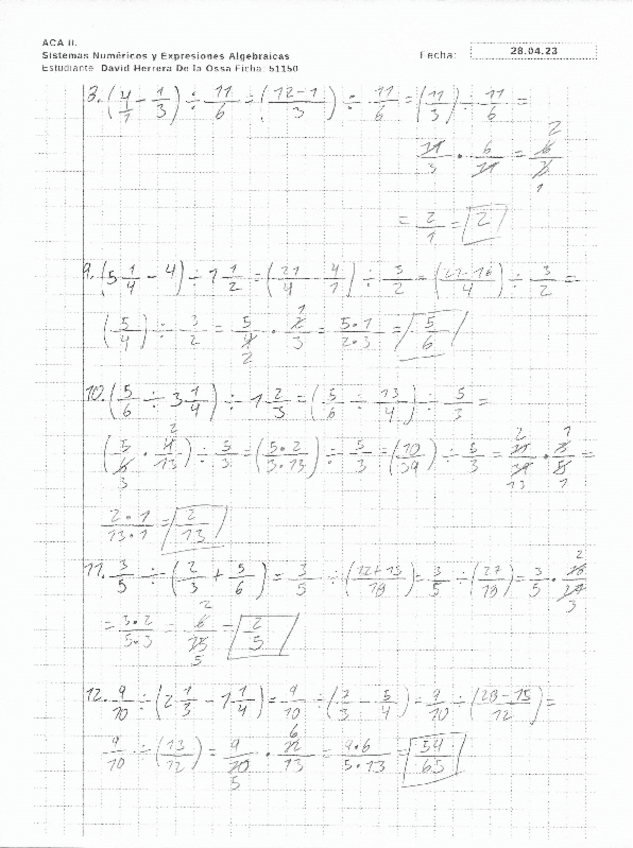 ACA II.
Sistemas Numéricos y Expresiones Algebraicas
Fecha: 28.04.23
Estudiante: David Herrera De la Ossa Ficha: 51150
8. (4/1 - 1/3) ÷ 11/6 = ((12-1)/3) ÷ 11/6 = (11/3) ÷ 11/6 =
11/3 • 6/11 = 6/3 2 1
= 2/1 = 2
9. (5 1/4 - 4) ÷ 1 1/2 = (21/4 - 4/1) ÷ 3/2 = ((21-16)/4) ÷ 3/2 =
(5/4) ÷ 3/2 = 5/4 2 • 2/3 1 = (5•1)/(2•3) = 5/6
10. (5/6 ÷ 3 1/4) ÷ 1 2/3 = (5/6 ÷ 13/4) ÷ 5/3 =
(5/6 3 • 4/13 2) ÷ 5/3 = ((5•2)/(3•13)) ÷ 5/3 = (10/39) ÷ 5/3 = 10/39 2 13 • 3/5 1 1 =
(2•1)/(13•1) = 2/13
11. 3/5 ÷ (2/3 + 5/6) = 3/5 ÷ ((12+15)/18) = 3/5 ÷ (27/18) = 3/5 • 18/27 2 3
= (3•2)/(5•3) = 6/15 2 5 = 2/5
12. 9/10 ÷ (2 1/3 - 1 1/4) = 9/10 ÷ (7/3 - 5/4) = 9/10 ÷ ((28-15)/12) =
9/10 ÷ (13/12) = 9/10 5 • 12/13 6 = (9•6)/(5•13) = 54/65